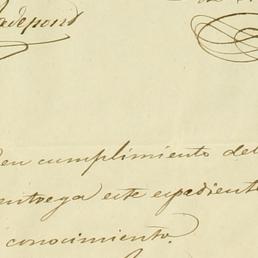 en cumplimiento del
entrega este espediente
conocimiento.